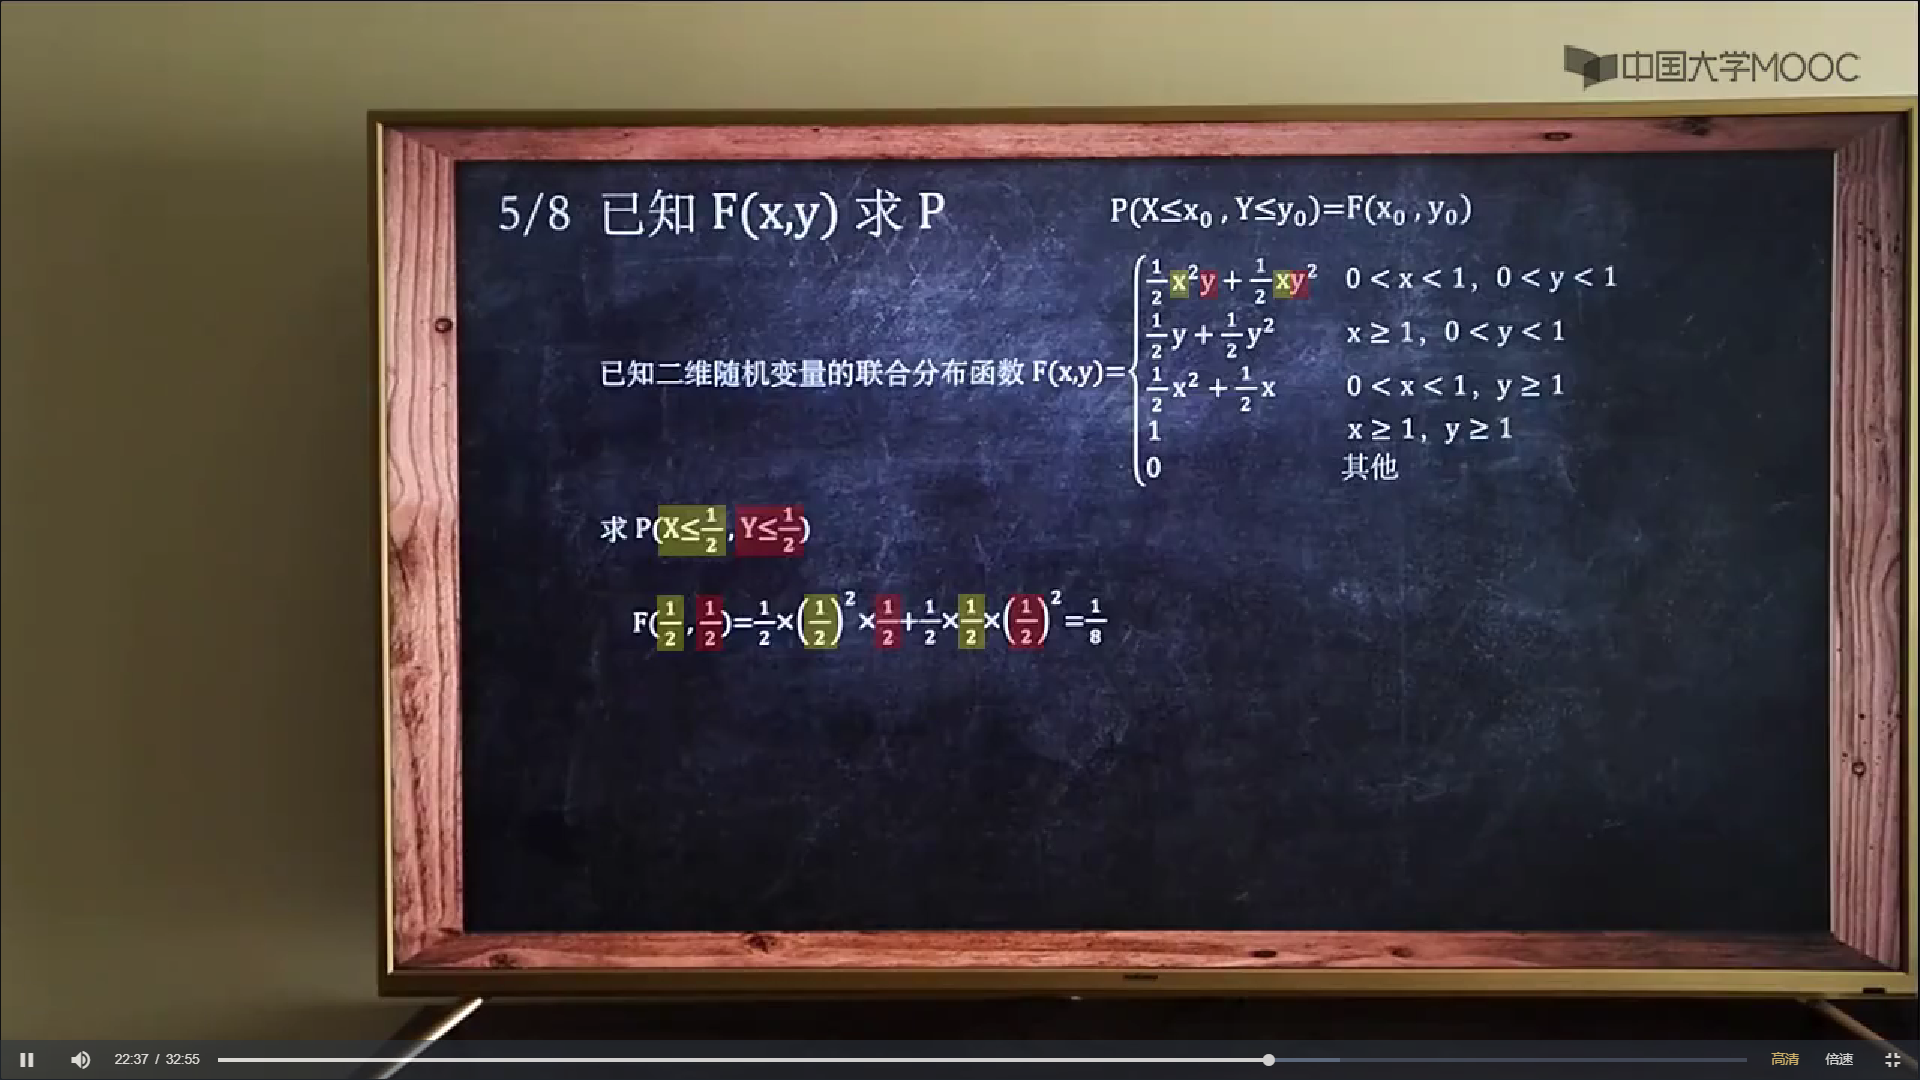 中国大学MOOC
5/8 已知 F(x,y) 求 P
P(X≤x₀ , Y≤y₀)=F(x₀ , y₀)
已知二维随机变量的联合分布函数 F(x,y)=
1/2 x²y + 1/2 xy² 0 < x < 1, 0 < y < 1
1/2 y + 1/2 y² x ≥ 1, 0 < y < 1
1/2 x² + 1/2 x 0 < x < 1, y ≥ 1
1 x ≥ 1, y ≥ 1
0 其他
求 P(X≤1/2 , Y≤1/2)
F(1/2 , 1/2)=1/2×(1/2)²×1/2+1/2×1/2×(1/2)²=1/8
22:37 / 32:55
高清
倍速